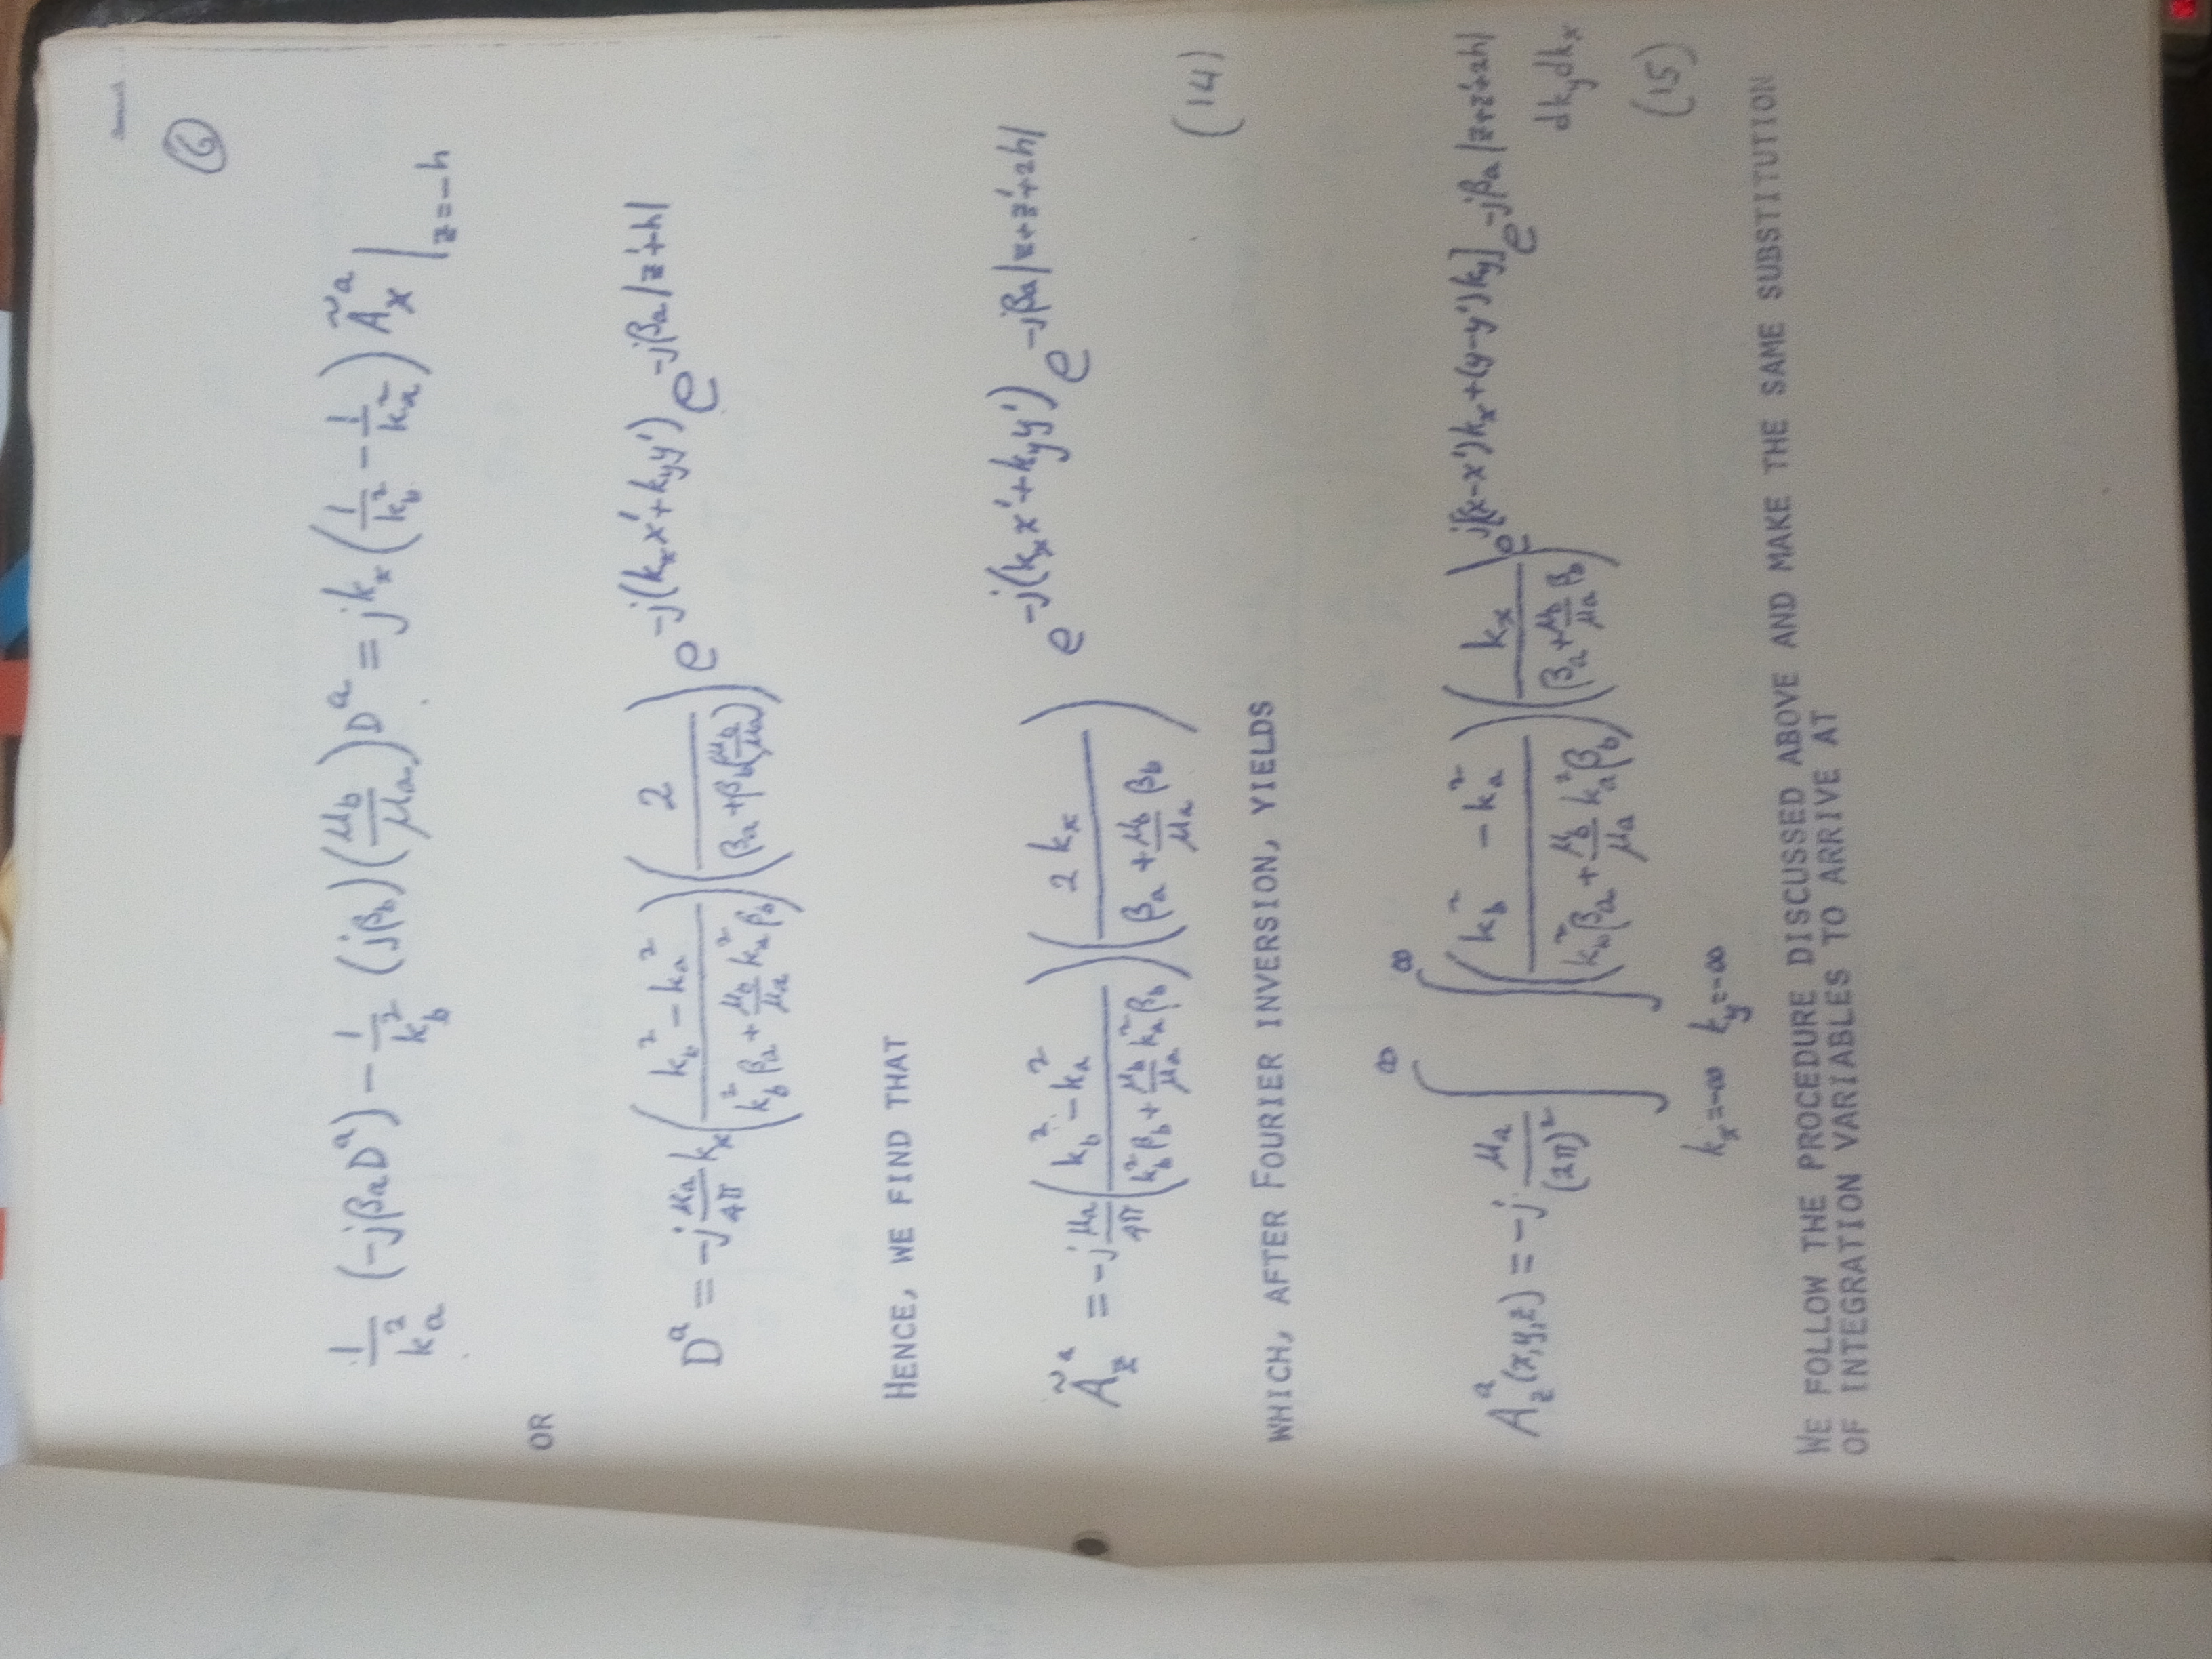 ⑥
1/k_a² (-jβ_a D^a) - 1/k_b² (jβ_b)(μ_b/μ_a) D^a = jk_x (1/k_b² - 1/k_a²) Ã_x^a |_{z=-h}
OR
D^a = -j μ_a/4π k_x ((k_b² - k_a²)/(k_b² β_a + μ_b/μ_a k_a² β_b)) (2/(β_a + β_b(μ_b/μ_a))) e^{-j(k_x x' + k_y y')} e^{-jβ_a|z'+h|}
HENCE, WE FIND THAT
Ã_z^a = -j μ_a/4π ((k_b² - k_a²)/(k_b² β_b + μ_b/μ_a k_a² β_b)) (2k_x/(β_a + μ_b/μ_a β_b)) e^{-j(k_x x' + k_y y')} e^{-jβ_a|z+z'+2h|}
(14)
WHICH, AFTER FOURIER INVERSION, YIELDS
A_z^a (x,y,z) = -j μ_a/(2π)² ∫_{k_x=-∞}^{∞} ∫_{k_y=-∞}^{∞} ((k_b² - k_a²)/(k_b² β_a + μ_b/μ_a k_a² β_b)) (k_x/(β_a + μ_b/μ_a β_b)) e^{j[(x-x')k_x + (y-y')k_y]} e^{-jβ_a|z+z'+2h|}
dk_y dk_x
(15)
WE FOLLOW THE PROCEDURE DISCUSSED ABOVE AND MAKE THE SAME SUBSTITUTION
OF INTEGRATION VARIABLES TO ARRIVE AT